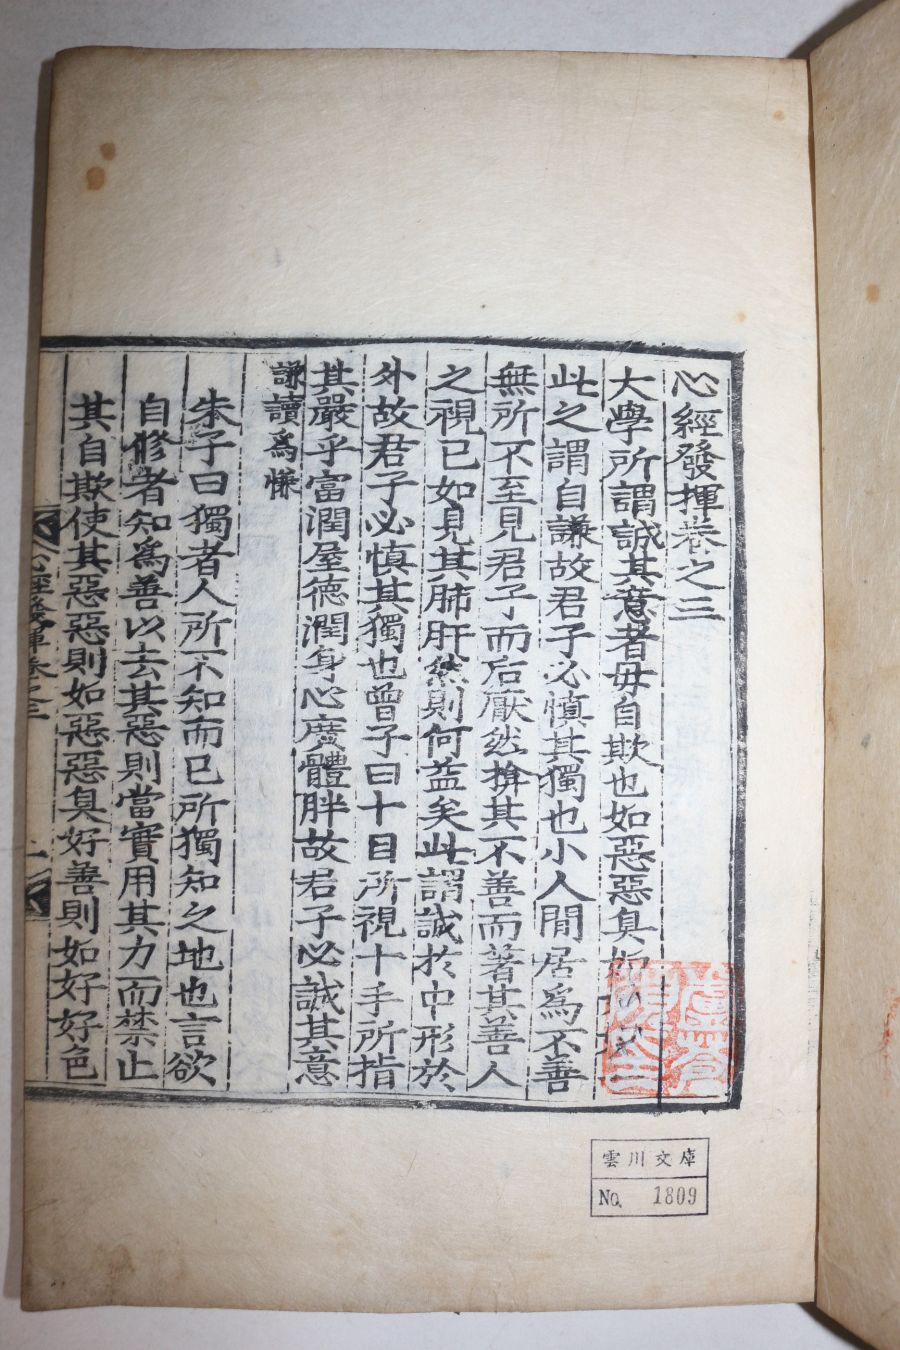 心經發揮卷之三
大學所謂誠其意者毋自欺也如惡惡臭如好好色
此之謂自謙故君子必慎其獨也小人閒居爲不善
無所不至見君子而后厭然揜其不善而著其善人
之視已如見其肺肝然則何益矣此謂誠於中形於
外故君子必慎其獨也曾子曰十目所視十手所指
其嚴乎富潤屋德潤身心廣體胖故君子必誠其意
謙讀爲慊
朱子曰獨者人所不知而已所獨知之地也言欲
自修者知爲善以去其惡則當實用其力而禁止
其自欺使其惡惡則如惡惡臭好善則如好好色
心經發揮卷之三
一
雲川文庫
No. 1809